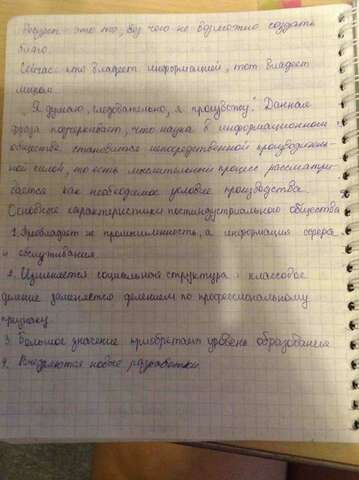 Ресурс - это то, без чего не возможно создать
благо.
Сейчас кто владеет информацией, тот владеет
миром.
„Я думаю, следовательно, я процветаю" Данная
фраза подчеркивает, что наука в информационном
обществе становится непосредственной производствен-
ной силой, то есть мыслительный процесс рассматри-
вается как необходимое условие производства.
Основные характеристики постиндустриального общества
1. Преобладает не промышленность, а информация сфера
и обслуживания.
2. Изменяется социальная структура : классовое
деление заменяется делением по профессиональному
признаку.
3. Большое значение приобретает уровень образования
4. Внедряются новые разработки.